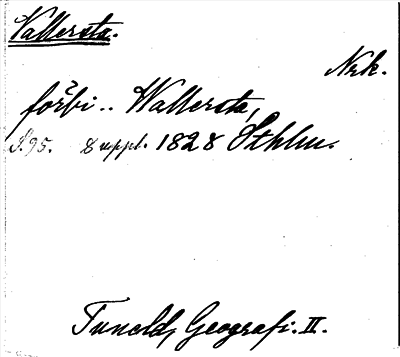 Vallersta.
Nrk.
förbi .. Wallersta,
S. 95. 8 uppl. 1828 Sthlm.
Tuneld, Geografi. II.